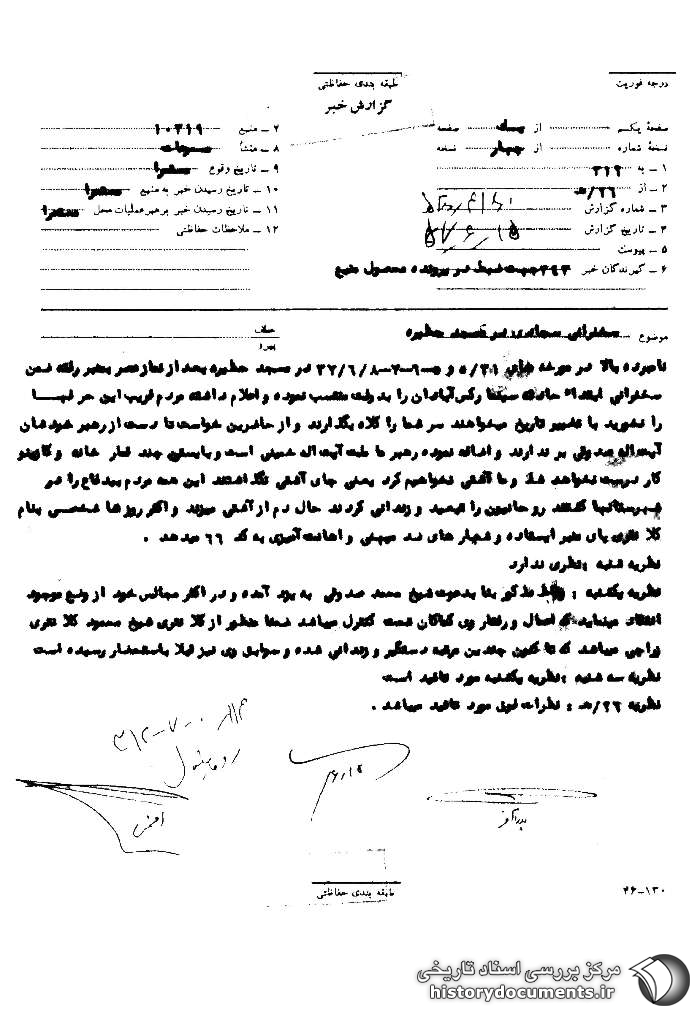 درجه فوریت
طبقه بندی حفاظتی
گزارش خبر
صفحه یکم از یک صفحه
نسخه شماره از چهار نسخه
۱ - به ۳۱۲
۲ - از ۲۶/هـ
۳ - شماره گزارش
۴ - تاریخ گزارش
۵ - پیوست
۶ - گیرندگان خبر ۳۴۳ جهت ضبط در پرونده محصول منبع
۷ - منبع ۱۰۳۱۹
۸ - منشأ
۹ - تاریخ وقوع
۱۰ - تاریخ رسیدن خبر به منبع
۱۱ - تاریخ رسیدن خبر برهبر عملیات محل
۱۲ - ملاحظات حفاظتی
موضوع سخنرانی سجادی در مسجد حظیره
عطف
پیرو
نامبرده بالا در مورخه های ۵/۳۱ و در مسجد حظیره بعد از نماز عصر بمنبر رفته ضمن
سخنرانی ابتداء حادثه سینما رکس آبادان را بدولت منتسب نموده و اعلام داشته مردم فریب این حرفها
را نخورید با تغییر تاریخ میخواهند سر شما را کلاه بگذارند و از حاضرین خواست تا دست از رهبر خودشان
آیت اله صدوقی بر ندارند و اضافه نموده رهبر ما ملت آیت اله خمینی است و با بستن چند قمار خانه و کازینو
کار درست نخواهد شد و ما آشتی نخواهیم کرد یعنی جای آشتی نگذاشتند این همه مردم بیدفاع را در
شهرستانها کشتند روحانیون را تبعید و زندانی کردند حال دم از آشتی میزنند و اکثر روزها شخصی بنام
کلانتری پای منبر ایستاده و شعارهای ضد میهنی و اهانت آمیزی به کد ۶۶ میدهد .
نظریه شنبه : نظری ندارد
نظریه یکشنبه : واعظ مذکور بنا بدعوت شیخ محمد صدوقی به یزد آمده و در اکثر مجالس خود از وضع موجود
انتقاد مینماید که اعمال و رفتار وی کماکان تحت کنترل میباشد ضمنا منظور از کلانتری شیخ محمود کلانتری
میباشد که تا کنون چندین مرتبه دستگیر و زندانی شده و سوابق وی نیز قبلا باستحضار رسیده است
نظریه سه شنبه : نظریه یکشنبه مورد تائید است
نظریه ۲۶/هـ : نظرات فوق مورد تائید میباشد .
طبقه بندی حفاظتی
۴۶-۱۳۰
مرکز بررسی اسناد تاریخی
historydocuments.ir